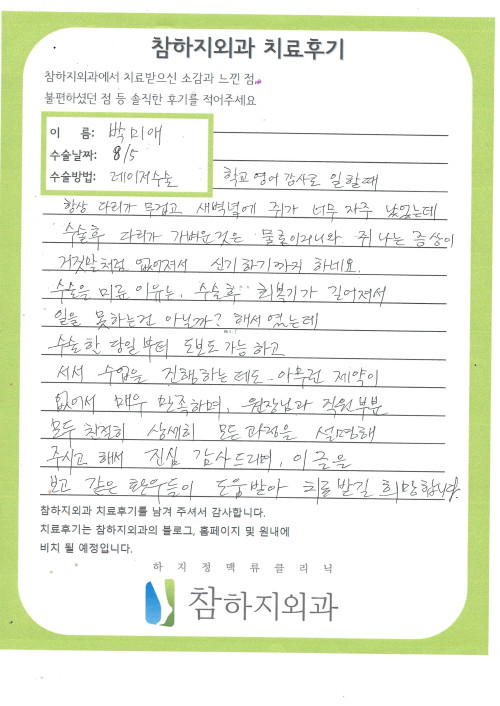 참하지외과 치료후기
참하지외과에서 치료받으신 소감과 느낀 점,
불편하셨던 점 등 솔직한 후기를 적어주세요
이 름: 박미애
수술날짜: 8/5
수술방법: 레이저수술
학교 영어 강사로 일할때
항상 다리가 무겁고 새벽녘에 쥐가 너무 자주 났었는데
수술후 다리가 가벼운것은 물론이거니와 쥐 나는 증상이
거짓말처럼 없어져서 신기하기까지 하네요.
수술을 미룬 이유는, 수술후 회복기가 길어져서
일을 못하는건 아닐까? 해서 였는데
수술한 당일부터 도보도 가능하고
서서 수업을 진행하는데도 아무런 제약이
없어서 매우 만족하며, 원장님과 직원부분
모두 친절히 상세히 모든과정을 설명해
주시고 해서 진심 감사드리며, 이글을
보고 같은 환우들이 도움받아 치료받길 희망합니다.
참하지외과 치료후기를 남겨 주셔서 감사합니다.
치료후기는 참하지외과의 블로그, 홈페이지 및 원내에
비치 될 예정입니다.
하지정맥류클리닉
참하지외과